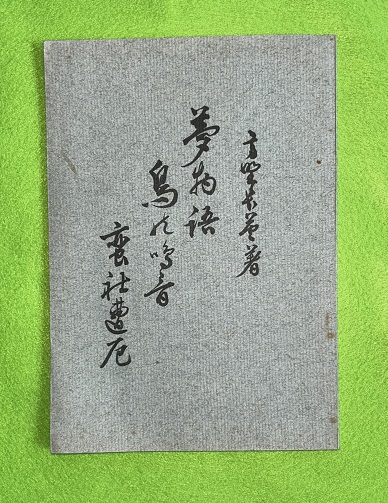 高野長英著
夢物語
鳥の鳴音
蛮社遭厄